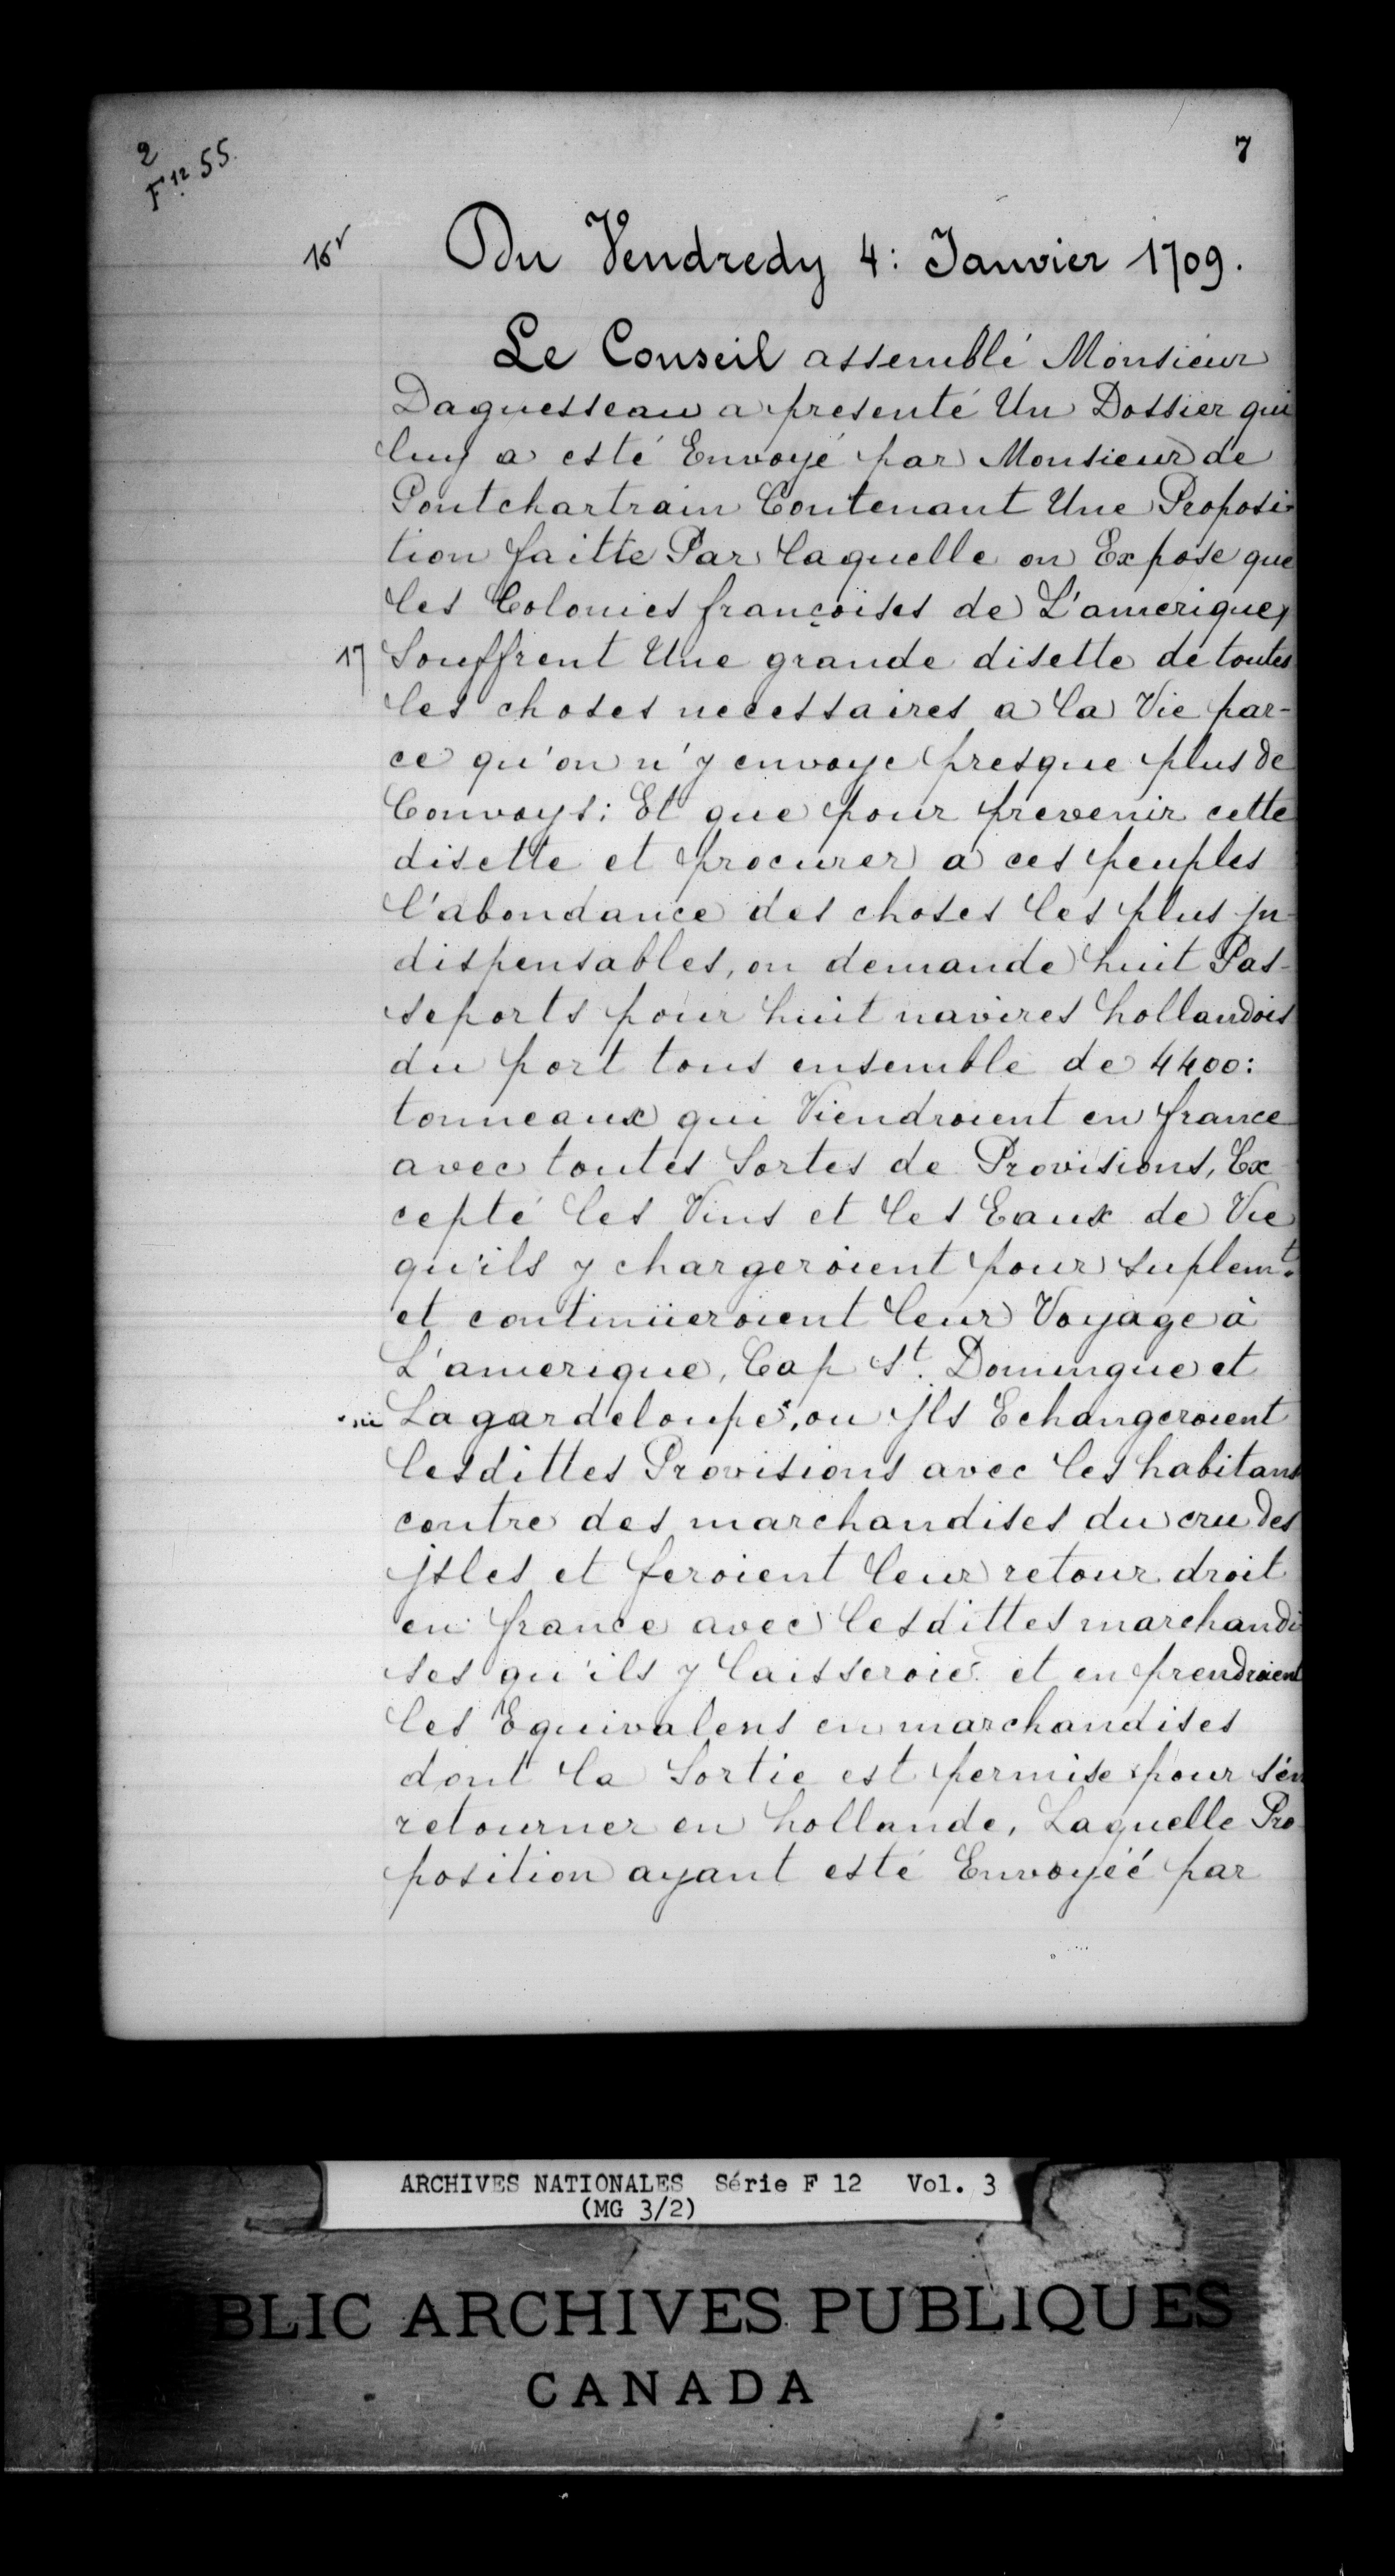 2
F 12. 55.
7
16v
Du Vendredy 4: Janvier 1709.
Le Conseil assemblé Monsieur
Daguesseau a presenté Un Dossier qui
luy a esté Envoyé par Monsieur de
Pontchartrain Contenant Une Proposi-
tion faitte Par laquelle on Expose que
les Colonies françoises de L'amerique,
17 Souffrent Une grande disette de toutes
les choses necessaires a la Vie par-
ce qu'on n'y envoye presque plus de
Convoys: Et que pour prevenir cette
disette et procurer a ces peuples
l'abondance des choses les plus jn-
dispensables, on demande huit Pas-
seports pour huit navires hollandois
du port tous ensemble de 4400:
tonneaux qui Viendroient en france
avec toutes Sortes de Provisions, Ex
cepté les Vins et les Eaux de Vie
qu'ils y chargeroient pour suplemt.
et continüeroient leur Voyage à
L'amerique, Cap St. Domingue et
Lagardeloupe*, ou Jls Echangeroient
lesdittes Provisions avec les habitans
contre des marchandises du cru des
jsles et feroient leur retour droit
en france avec lesdittes marchandi
ses qu'ils y laisseroie. et en prendroient
les Equivalens en marchandises
dont la Sortie est permise pour s'en
retourner en hollande, Laquelle Pro
position ayant esté Envoyéé par
ARCHIVES NATIONALES Série F 12 Vol. 3
(MG 3/2)
BLIC ARCHIVES PUBLIQUES
CANADA